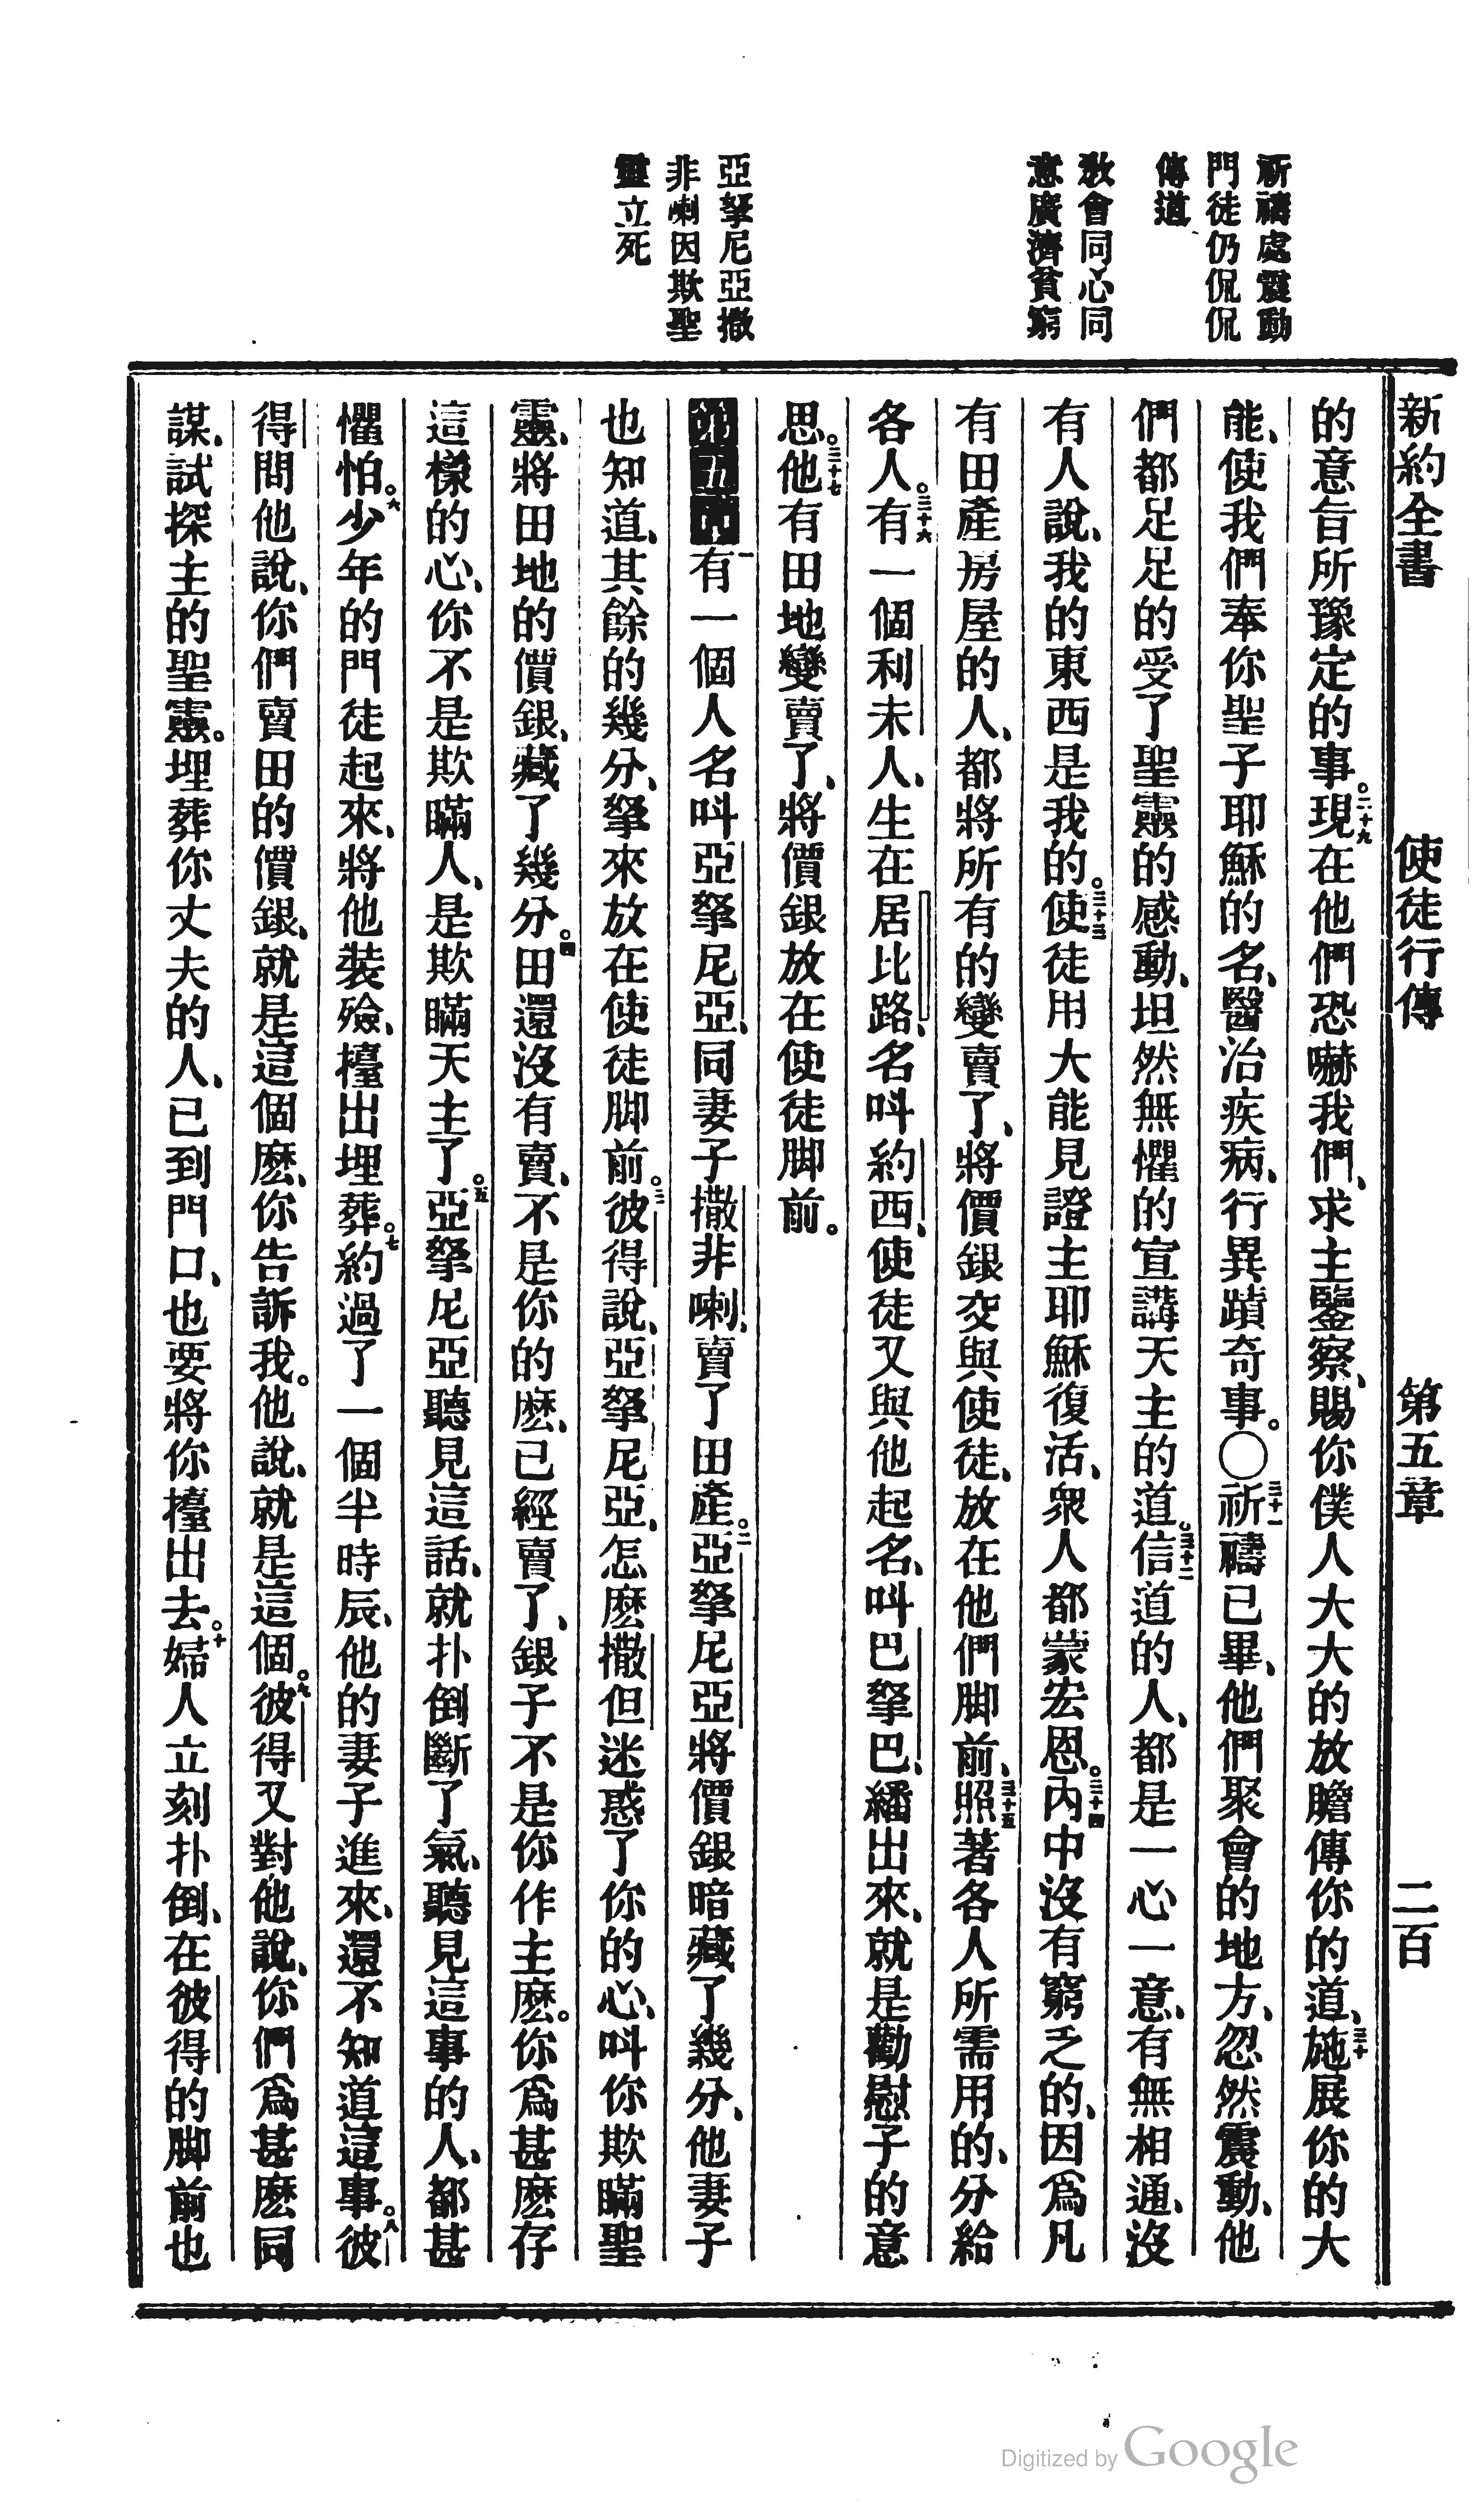 新約全書 使徒行傳 第五章 二百
祈禱處震動
門徒仍侃侃
傳道
教會同心同
意廣濟貧窮
亞拏尼亞撒
非喇因欺聖
靈立死
的意旨所豫定的事。二十九現在他們恐嚇我們、求主鑒察、賜你僕人大大的放膽傳你的道、三十施展你的大
能、使我們奉你聖子耶穌的名、醫治疾病、行異蹟奇事。〇三十一祈禱已畢、他們聚會的地方、忽然震動、他
們都足足的受了聖靈的感動、坦然無懼的宣講天主的道。三十二信道的人、都是一心一意、有無相通、沒
有人說、我的東西是我的。三十三使徒用大能見證主耶穌復活、衆人都蒙宏恩。三十四內中沒有窮乏的、因爲凡
有田產房屋的人、都將所有的變賣了、將價銀交與使徒、放在他們脚前、三十五照著各人所需用的、分給
各人。三十六有一個利未人、生在居比路、名呌約西、使徒又與他起名、呌巴拏巴、繙出來、就是勸慰子的意
思。三十七他有田地變賣了、將價銀放在使徒脚前。
第五章一有一個人名呌亞拏尼亞、同妻子撒非喇、賣了田產。二亞拏尼亞將價銀暗藏了幾分、他妻子
也知道、其餘的幾分、拏來放在使徒脚前。三彼得說、亞拏尼亞、怎麽撒但迷惑了你的心、呌你欺瞞聖
靈、將田地的價銀、藏了幾分。四田還沒有賣、不是你的麽、已經賣了、銀子不是你作主麽。你爲甚麽存
這樣的心、你不是欺瞞人、是欺瞞天主了。五亞拏尼亞聽見這話、就扑倒斷了氣、聽見這事的人、都甚
懼怕。六少年的門徒起來、將他裝殮、擡出埋葬。七約過了一個半時辰、他的妻子進來、還不知道這事。八彼
得問他說、你們賣田的價銀、就是這個麽、你告訴我。他說、就是這個。九彼得又對他說、你們爲甚麽同
謀、試探主的聖靈。埋葬你丈夫的人、已到門口、也要將你擡出去。十婦人立刻扑倒、在彼得的脚前也
Digitized by Google